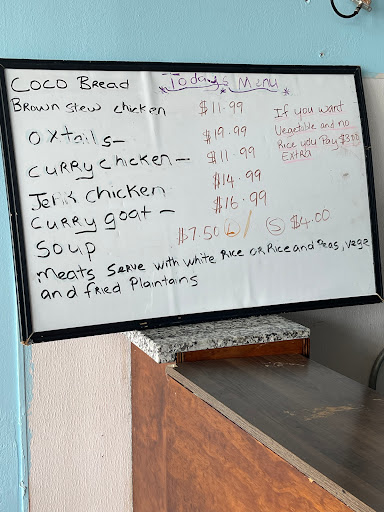 Today's Menu
COCO Bread
Brown stew chicken $11.99
Oxtails- $19.99
CURRY chicken- $11.99
Jerk chicken $14.99
CURRY goat- $16.99
Soup $7.50 L / S $4.00
meats Serve with white Rice OR Rice and Peas, vege
and fried Plaintains
If you want
Vegetible and no
Rice you Pay $3.00
Extra